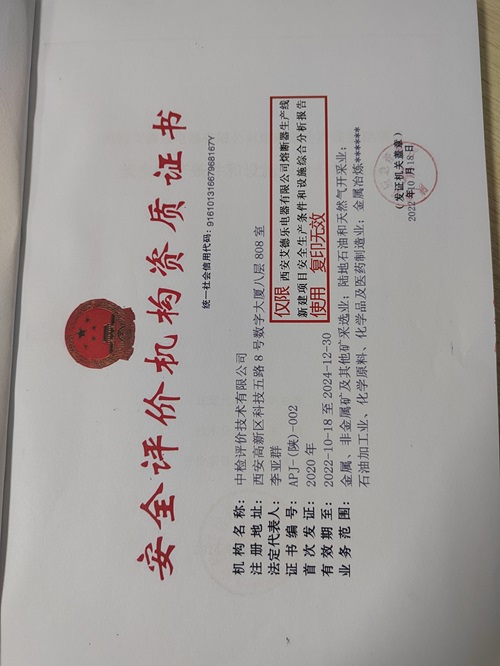 安全评价机构资质证书
统一社会信用代码：91610131667968167Y
机构名称：中检评价技术有限公司
注册地址：西安高新区科技五路8号数字大厦八层808室
法定代表人：李亚群
证书编号：APJ-(陕)-002
首次发证：2020年
有效期至：2022-10-18至2024-12-30
业务范围：金属、非金属矿及其他矿采选业；陆地石油和天然气开采业；
石油加工业、化学原料、化学品及医药制造业；金属冶炼******
仅限 西安艾德乐电器有限公司熔断器生产线
新建项目安全生产条件和设施综合分析报告
使用 复印无效
（发证机关盖章）
2022年10月18日